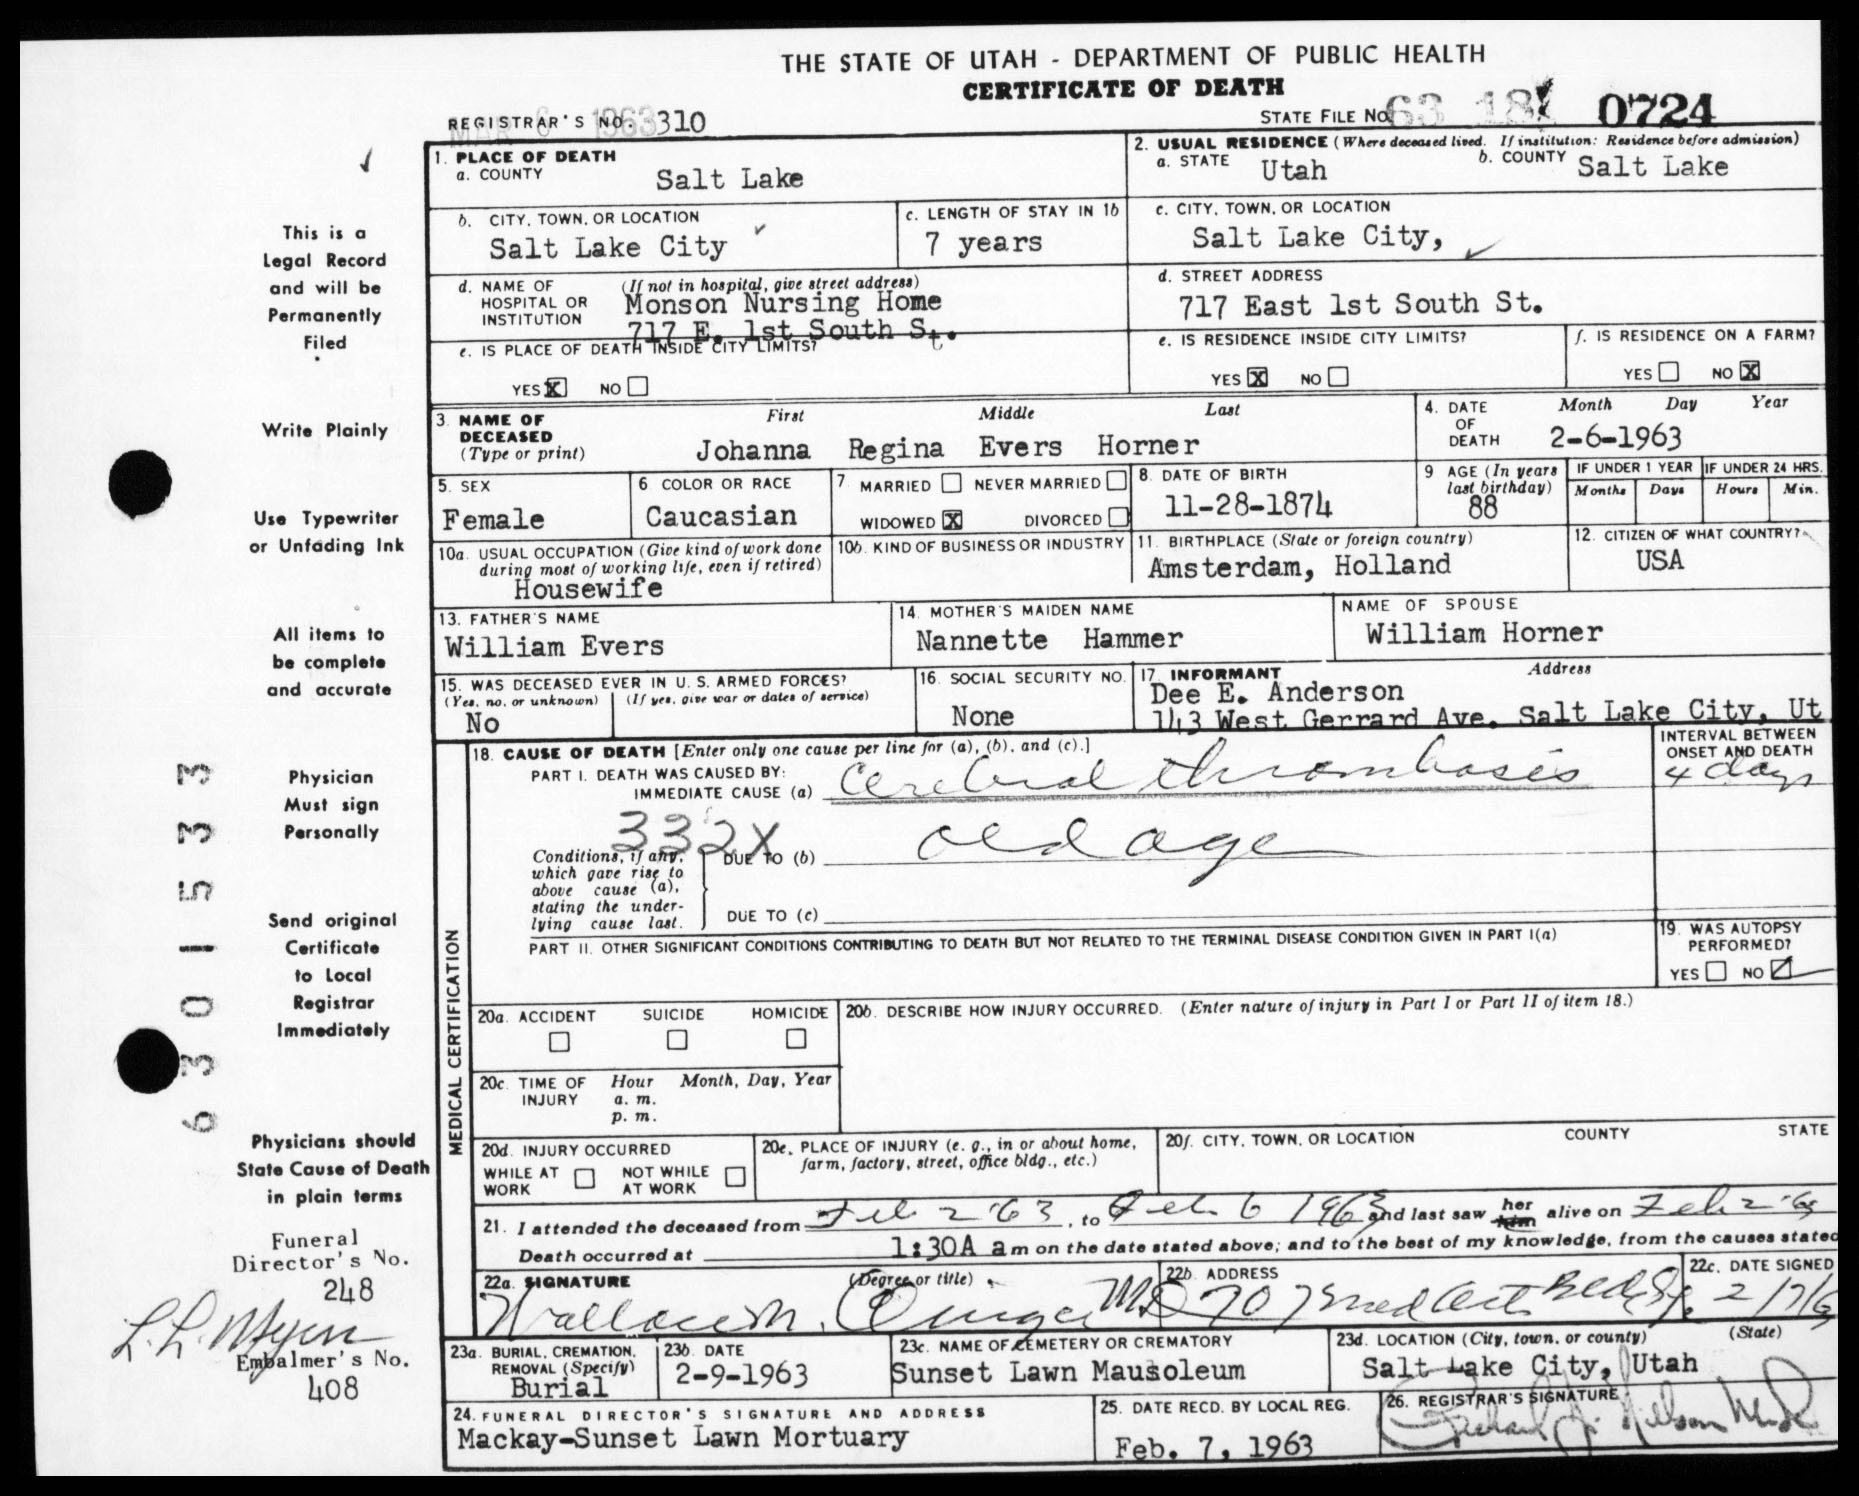 THE STATE OF UTAH - DEPARTMENT OF PUBLIC HEALTH
CERTIFICATE OF DEATH
REGISTRAR'S NO. 310
MAR 6 1963
STATE FILE NO. 63 18 0724
1. PLACE OF DEATH
a. COUNTY Salt Lake
2. USUAL RESIDENCE (Where deceased lived. If institution: Residence before admission)
a. STATE Utah b. COUNTY Salt Lake
b. CITY, TOWN, OR LOCATION
Salt Lake City
c. LENGTH OF STAY IN 1b
7 years
c. CITY, TOWN, OR LOCATION
Salt Lake City,
d. NAME OF HOSPITAL OR INSTITUTION (If not in hospital, give street address)
Monson Nursing Home
717 E. 1st South St.
d. STREET ADDRESS
717 East 1st South St.
e. IS PLACE OF DEATH INSIDE CITY LIMITS?
YES X NO
e. IS RESIDENCE INSIDE CITY LIMITS?
YES X NO
f. IS RESIDENCE ON A FARM?
YES NO X
3. NAME OF DECEASED (Type or print)
First Middle Last
Johanna Regina Evers Horner
4. DATE OF DEATH
Month Day Year
2-6-1963
5. SEX
Female
6. COLOR OR RACE
Caucasian
7. MARRIED NEVER MARRIED
WIDOWED X DIVORCED
8. DATE OF BIRTH
11-28-1874
9 AGE (In years last birthday)
88
IF UNDER 1 YEAR
Months Days
IF UNDER 24 HRS.
Hours Min.
10a. USUAL OCCUPATION (Give kind of work done during most of working life, even if retired)
Housewife
10b. KIND OF BUSINESS OR INDUSTRY
11. BIRTHPLACE (State or foreign country)
Amsterdam, Holland
12. CITIZEN OF WHAT COUNTRY?
USA
13. FATHER'S NAME
William Evers
14. MOTHER'S MAIDEN NAME
Nannette Hammer
NAME OF SPOUSE
William Horner
15. WAS DECEASED EVER IN U. S. ARMED FORCES?
(Yes, no, or unknown) (If yes, give war or dates of service)
No
16. SOCIAL SECURITY NO.
None
17. INFORMANT Address
Dee E. Anderson
143 West Gerrard Ave. Salt Lake City, Ut
MEDICAL CERTIFICATION
18. CAUSE OF DEATH [Enter only one cause per line for (a), (b), and (c).]
PART I. DEATH WAS CAUSED BY:
IMMEDIATE CAUSE (a) Cerebral thrombosis
INTERVAL BETWEEN ONSET AND DEATH
4 days
332X
Conditions, if any, which gave rise to above cause (a), stating the underlying cause last.
DUE TO (b) old age
DUE TO (c)
PART II. OTHER SIGNIFICANT CONDITIONS CONTRIBUTING TO DEATH BUT NOT RELATED TO THE TERMINAL DISEASE CONDITION GIVEN IN PART I(a)
19. WAS AUTOPSY PERFORMED?
YES NO
20a. ACCIDENT SUICIDE HOMICIDE
20b. DESCRIBE HOW INJURY OCCURRED. (Enter nature of injury in Part I or Part II of item 18.)
20c. TIME OF INJURY Hour Month, Day, Year
a. m.
p. m.
20d. INJURY OCCURRED
WHILE AT WORK NOT WHILE AT WORK
20e. PLACE OF INJURY (e. g., in or about home, farm, factory, street, office bldg., etc.)
20f. CITY, TOWN, OR LOCATION COUNTY STATE
21. I attended the deceased from Feb 2 '63, to Feb. 6 1963 and last saw her him alive on Feb 2 '63
Death occurred at 1:30A am on the date stated above; and to the best of my knowledge, from the causes stated
22a. SIGNATURE (Degree or title)
Wallace M. MD
22b. ADDRESS
707 Med Arts Bldg
22c. DATE SIGNED
2/7/6
23a. BURIAL, CREMATION, REMOVAL (Specify)
Burial
23b. DATE
2-9-1963
23c. NAME OF CEMETERY OR CREMATORY
Sunset Lawn Mausoleum
23d. LOCATION (City, town, or county) (State)
Salt Lake City, Utah
24. FUNERAL DIRECTOR'S SIGNATURE AND ADDRESS
Mackay-Sunset Lawn Mortuary
25. DATE RECD. BY LOCAL REG.
Feb. 7, 1963
26. REGISTRAR'S SIGNATURE
Nielson
This is a
Legal Record
and will be
Permanently
Filed
Write Plainly
Use Typewriter
or Unfading Ink
All items to
be complete
and accurate
Physician
Must sign
Personally
Send original
Certificate
to Local
Registrar
Immediately
Physicians should
State Cause of Death
in plain terms
Funeral
Director's No.
248
L. L. Myers
Embalmer's No.
408
6301533